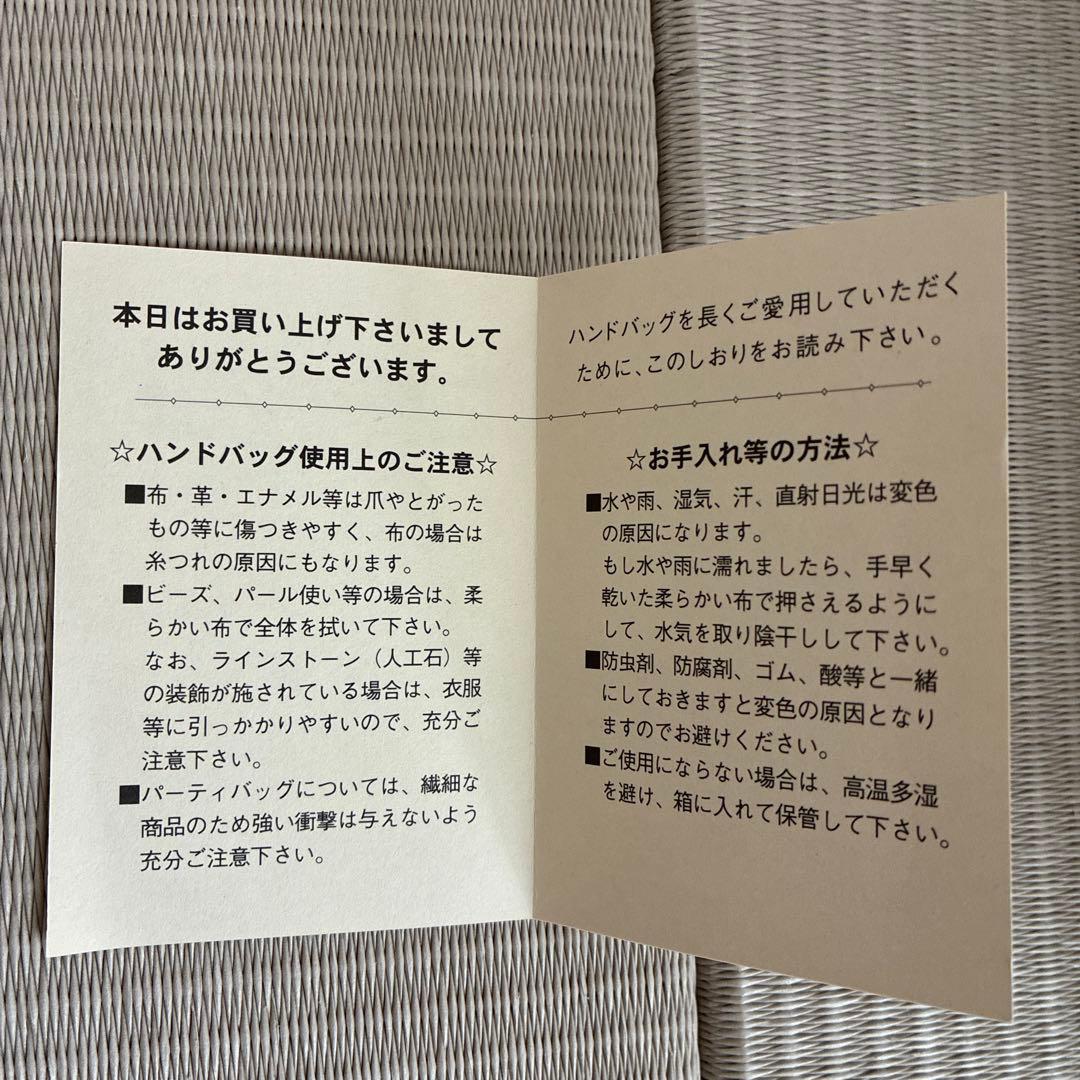 本日はお買い上げ下さいまして
ありがとうございます。
☆ハンドバッグ使用上のご注意☆
■布・革・エナメル等は爪やとがった
もの等に傷つきやすく、布の場合は
糸つれの原因にもなります。
■ビーズ、パール使い等の場合は、柔
らかい布で全体を拭いて下さい。
なお、ラインストーン（人工石）等
の装飾が施されている場合は、衣服
等に引っかかりやすいので、充分ご
注意下さい。
■パーティバッグについては、繊細な
商品のため強い衝撃は与えないよう
充分ご注意下さい。
ハンドバッグを長くご愛用していただく
ために、このしおりをお読み下さい。
☆お手入れ等の方法☆
■水や雨、湿気、汗、直射日光は変色
の原因になります。
もし水や雨に濡れましたら、手早く
乾いた柔らかい布で押さえるように
して、水気を取り陰干しして下さい。
■防虫剤、防腐剤、ゴム、酸等と一緒
にしておきますと変色の原因となり
ますのでお避けください。
■ご使用にならない場合は、高温多湿
を避け、箱に入れて保管して下さい。